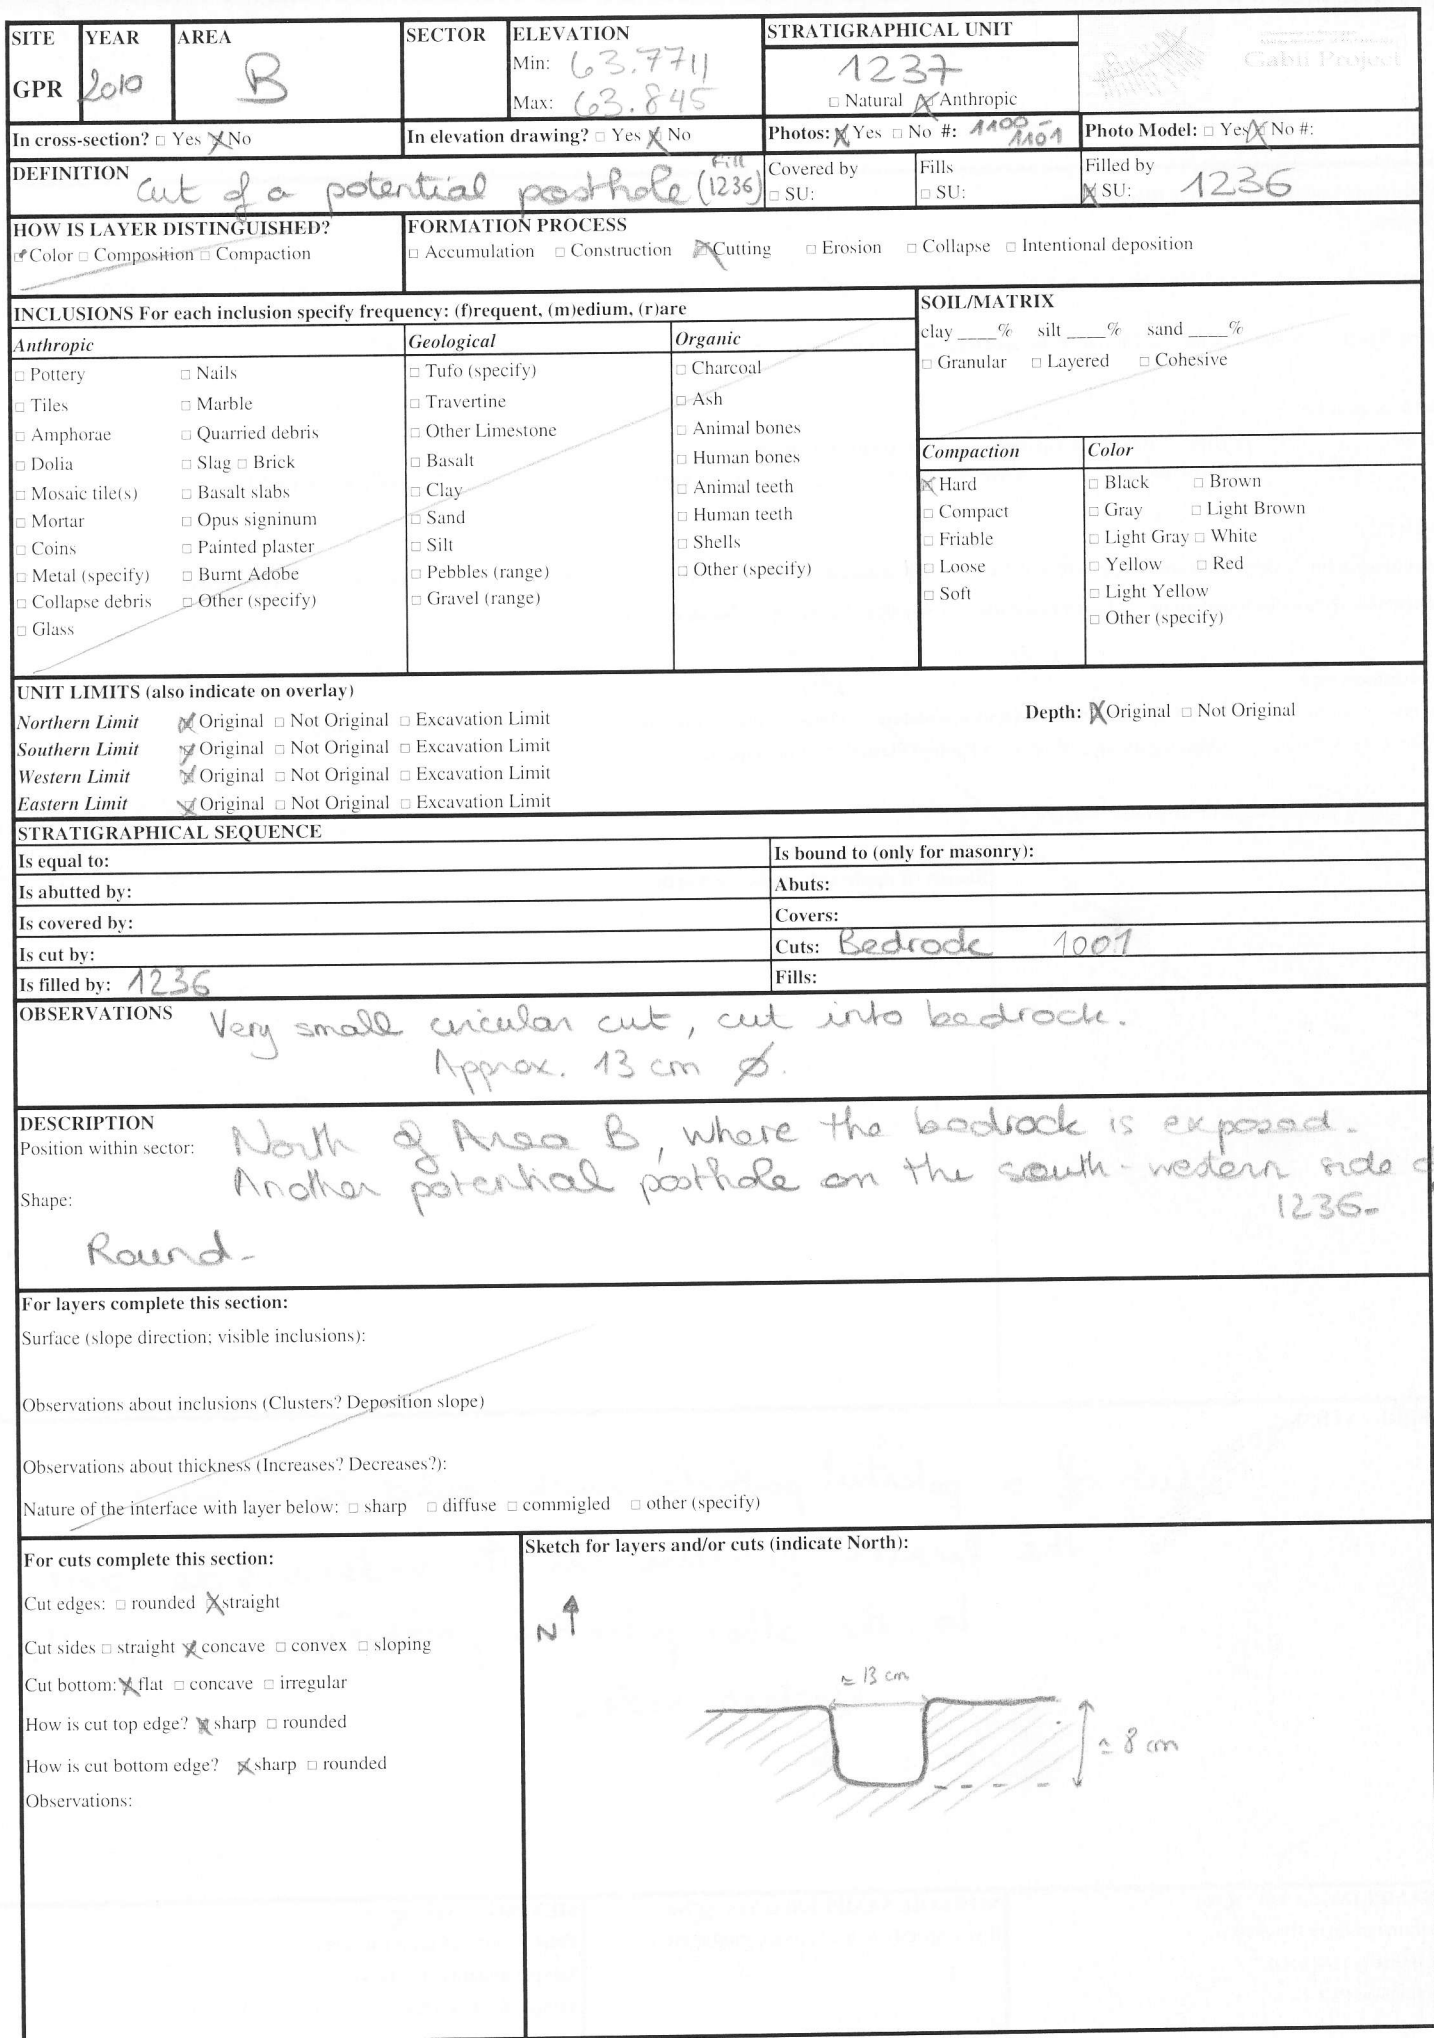 SITE YEAR AREA SECTOR ELEVATION STRATIGRAPHICAL UNIT
GPR 2010 B Min: 63.7711 1237
Max: 63.845 □ Natural ☒ Anthropic
Gabii Project
In cross-section? □ Yes ☒ No In elevation drawing? □ Yes ☒ No Photos: ☒ Yes □ No #: 1100-1101 Photo Model: □ Yes ☒ No #:
DEFINITION Cut of a potential posthole (Fill 1236) Covered by □ SU: Fills □ SU: Filled by ☒ SU: 1236
HOW IS LAYER DISTINGUISHED? FORMATION PROCESS
☑ Color □ Composition □ Compaction □ Accumulation □ Construction ☒ Cutting □ Erosion □ Collapse □ Intentional deposition
INCLUSIONS For each inclusion specify frequency: (f)requent, (m)edium, (r)are
Anthropic
□ Pottery □ Nails
□ Tiles □ Marble
□ Amphorae □ Quarried debris
□ Dolia □ Slag □ Brick
□ Mosaic tile(s) □ Basalt slabs
□ Mortar □ Opus signinum
□ Coins □ Painted plaster
□ Metal (specify) □ Burnt Adobe
□ Collapse debris □ Other (specify)
□ Glass
Geological
□ Tufo (specify)
□ Travertine
□ Other Limestone
□ Basalt
□ Clay
□ Sand
□ Silt
□ Pebbles (range)
□ Gravel (range)
Organic
□ Charcoal
□ Ash
□ Animal bones
□ Human bones
□ Animal teeth
□ Human teeth
□ Shells
□ Other (specify)
SOIL/MATRIX
clay ____% silt ____% sand ____%
□ Granular □ Layered □ Cohesive
Compaction
☒ Hard
□ Compact
□ Friable
□ Loose
□ Soft
Color
□ Black □ Brown
□ Gray □ Light Brown
□ Light Gray □ White
□ Yellow □ Red
□ Light Yellow
□ Other (specify)
UNIT LIMITS (also indicate on overlay)
Northern Limit ☒ Original □ Not Original □ Excavation Limit Depth: ☒ Original □ Not Original
Southern Limit ☒ Original □ Not Original □ Excavation Limit
Western Limit ☒ Original □ Not Original □ Excavation Limit
Eastern Limit ☒ Original □ Not Original □ Excavation Limit
STRATIGRAPHICAL SEQUENCE
Is equal to: Is bound to (only for masonry):
Is abutted by: Abuts:
Is covered by: Covers:
Is cut by: Cuts: Bedrock 1001
Is filled by: 1236 Fills:
OBSERVATIONS Very small circular cut, cut into bedrock.
Approx. 13 cm Ø.
DESCRIPTION
Position within sector: North of Area B, where the bedrock is exposed.
Another potential posthole on the south-western side
1236-
Shape:
Round-
For layers complete this section:
Surface (slope direction; visible inclusions):
Observations about inclusions (Clusters? Deposition slope)
Observations about thickness (Increases? Decreases?):
Nature of the interface with layer below: □ sharp □ diffuse □ commigled □ other (specify)
For cuts complete this section:
Cut edges: □ rounded ☒ straight
Cut sides □ straight ☒ concave □ convex □ sloping
Cut bottom: ☒ flat □ concave □ irregular
How is cut top edge? ☒ sharp □ rounded
How is cut bottom edge? ☒ sharp □ rounded
Observations:
Sketch for layers and/or cuts (indicate North):
N
≈ 13 cm
≈ 8 cm